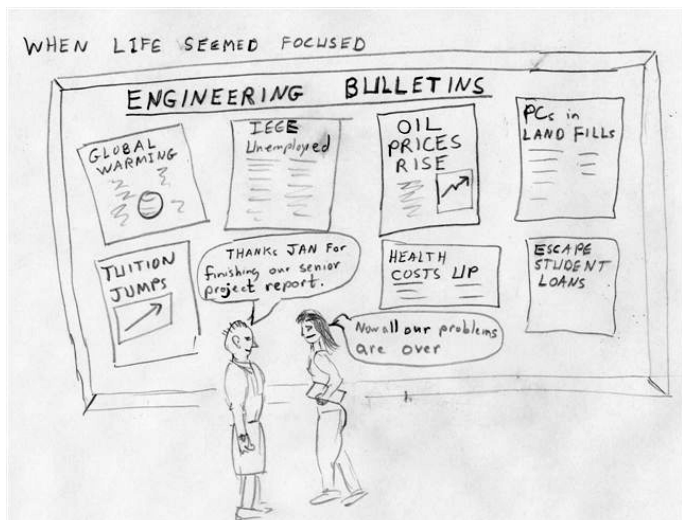 WHEN LIFE SEEMED FOCUSED
ENGINEERING BULLETINS
GLOBAL
WARMING
IEEE
Unemployed
OIL
PRICES
RISE
PCs in
LAND FILLS
TUITION
JUMPS
THANKS JAN FOR
finishing our senior
project report.
HEALTH
COSTS UP
ESCAPE
STUDENT
LOANS
Now all our problems
are over